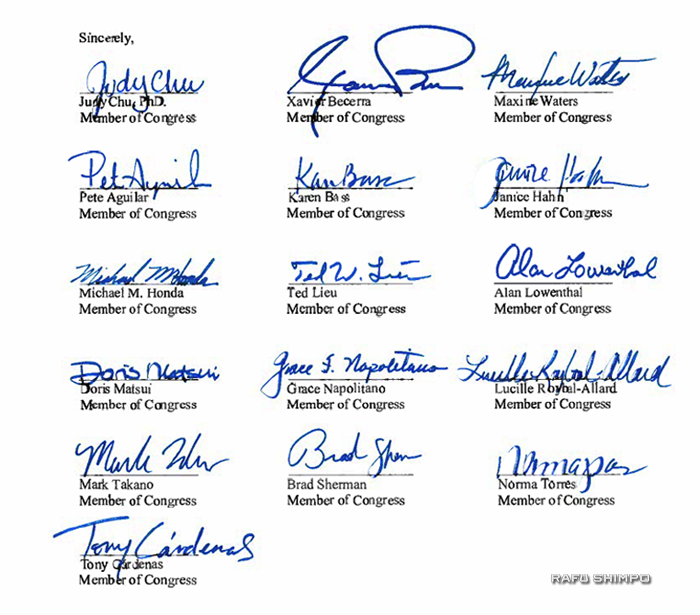 Sincerely,
Judy Chu Xavier Becerra Maxine Waters
Judy Chu, PhD. Xavier Becerra Maxine Waters
Member of Congress Member of Congress Member of Congress
Pete Aguilar Karen Bass Janice Hahn
Pete Aguilar Karen Bass Janice Hahn
Member of Congress Member of Congress Member of Congress
Michael M. Honda Ted W. Lieu Alan Lowenthal
Michael M. Honda Ted Lieu Alan Lowenthal
Member of Congress Member of Congress Member of Congress
Doris Matsui Grace F. Napolitano Lucille Roybal-Allard
Doris Matsui Grace Napolitano Lucille Roybal-Allard
Member of Congress Member of Congress Member of Congress
Mark Takano Brad Sherman
Mark Takano Brad Sherman Norma Torres
Member of Congress Member of Congress Member of Congress
Tony Cárdenas
Tony Cardenas
Member of Congress
RAFU SHIMPO